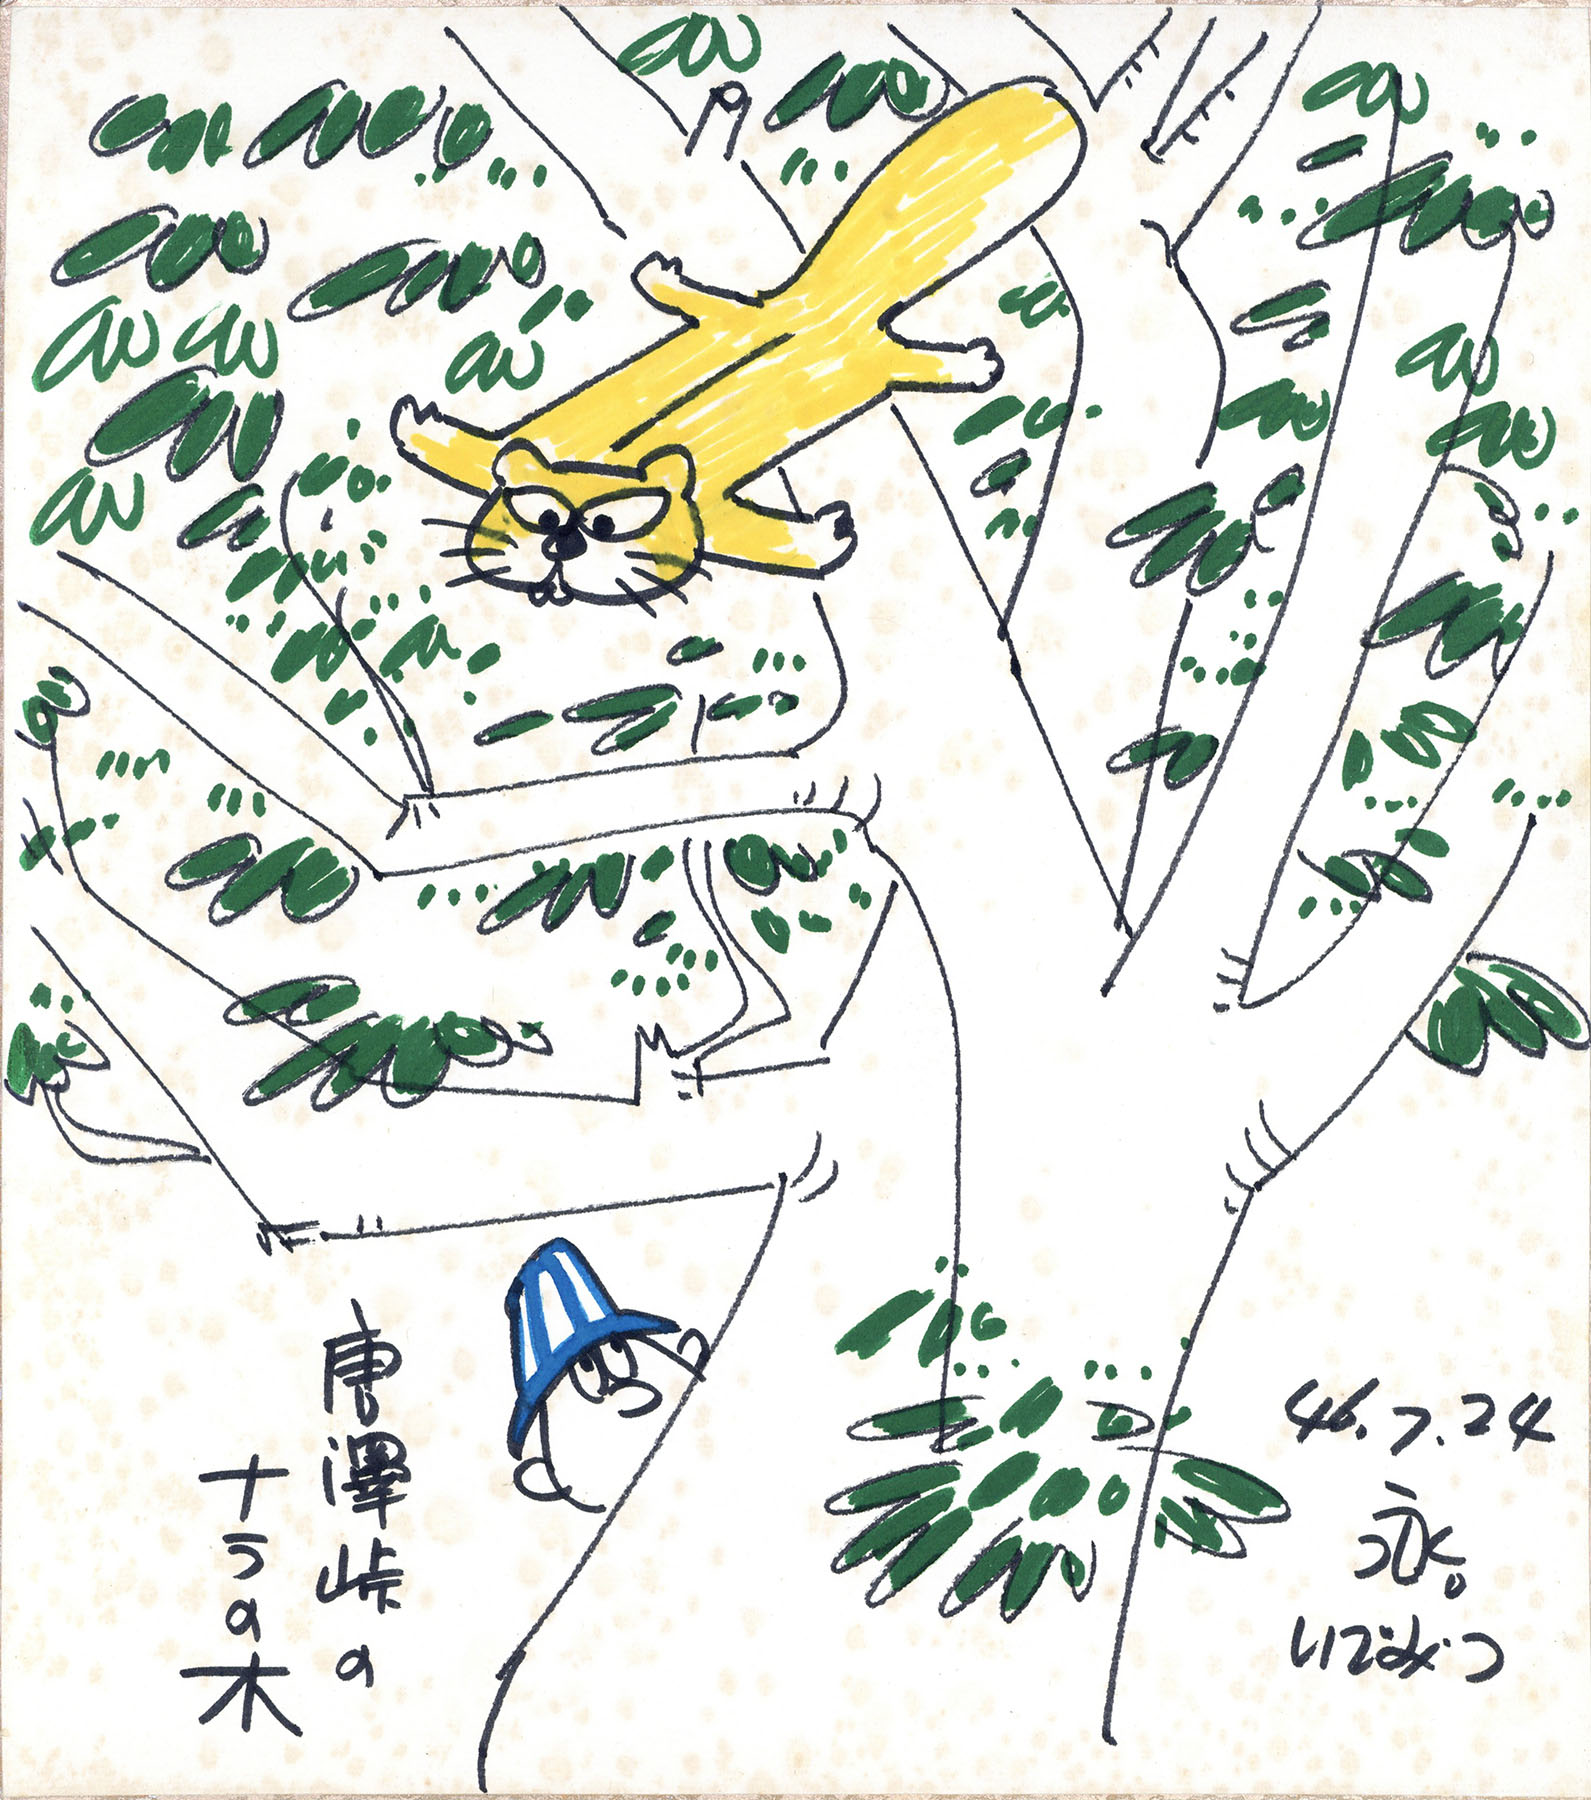 唐澤峠の
ナラの木
46.7.24
永。
いでみつ